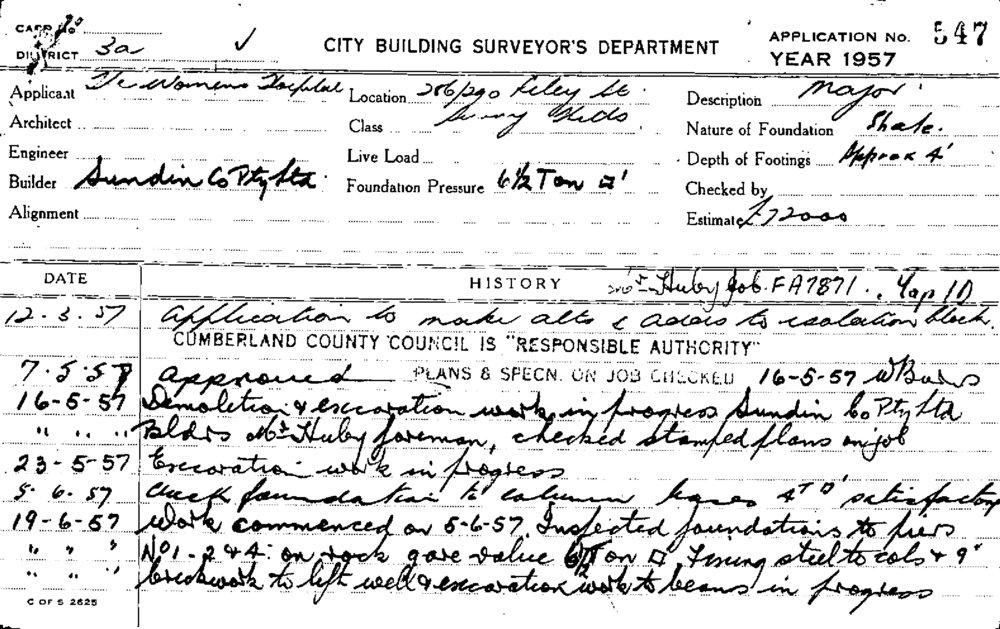 CARD No
DISTRICT 3a ✓ CITY BUILDING SURVEYOR'S DEPARTMENT APPLICATION No. 547
YEAR 1957
Applicant The Womens Hospital Location 286/290 Riley St. Description Major
Architect Class Surry Hills Nature of Foundation Shale.
Engineer Live Load Depth of Footings Approx 4'
Builder Sundin Co Pty Ltd Foundation Pressure 6½ Ton □' Checked by
Alignment Estimate £72000
DATE HISTORY Mr Huby Job. FA7871.
12.3.57 Application to make alts & addns to isolation block.
CUMBERLAND COUNTY COUNCIL IS "RESPONSIBLE AUTHORITY"
7.5.57 Approved PLANS & SPECN. ON JOB CHECKED 16-5-57
16-5-57 Demolition & excavation work in progress Sundin Co Pty Ltd
" " " Bldrs Mr Huby foreman, checked stamped plans on job
23-5-57 Excavation work in progress
5.6.57 Check foundation to column bases 4T □' satisfactory
19-6-57 Work commenced on 5-6-57. Inspected foundations to piers
" " " No 1-2 & 4 on rock gave value 6½ Ton □' Fixing steel to cols & 9"
" " " brickwork to lift well & excavation work to beams in progress
C OF S 2625